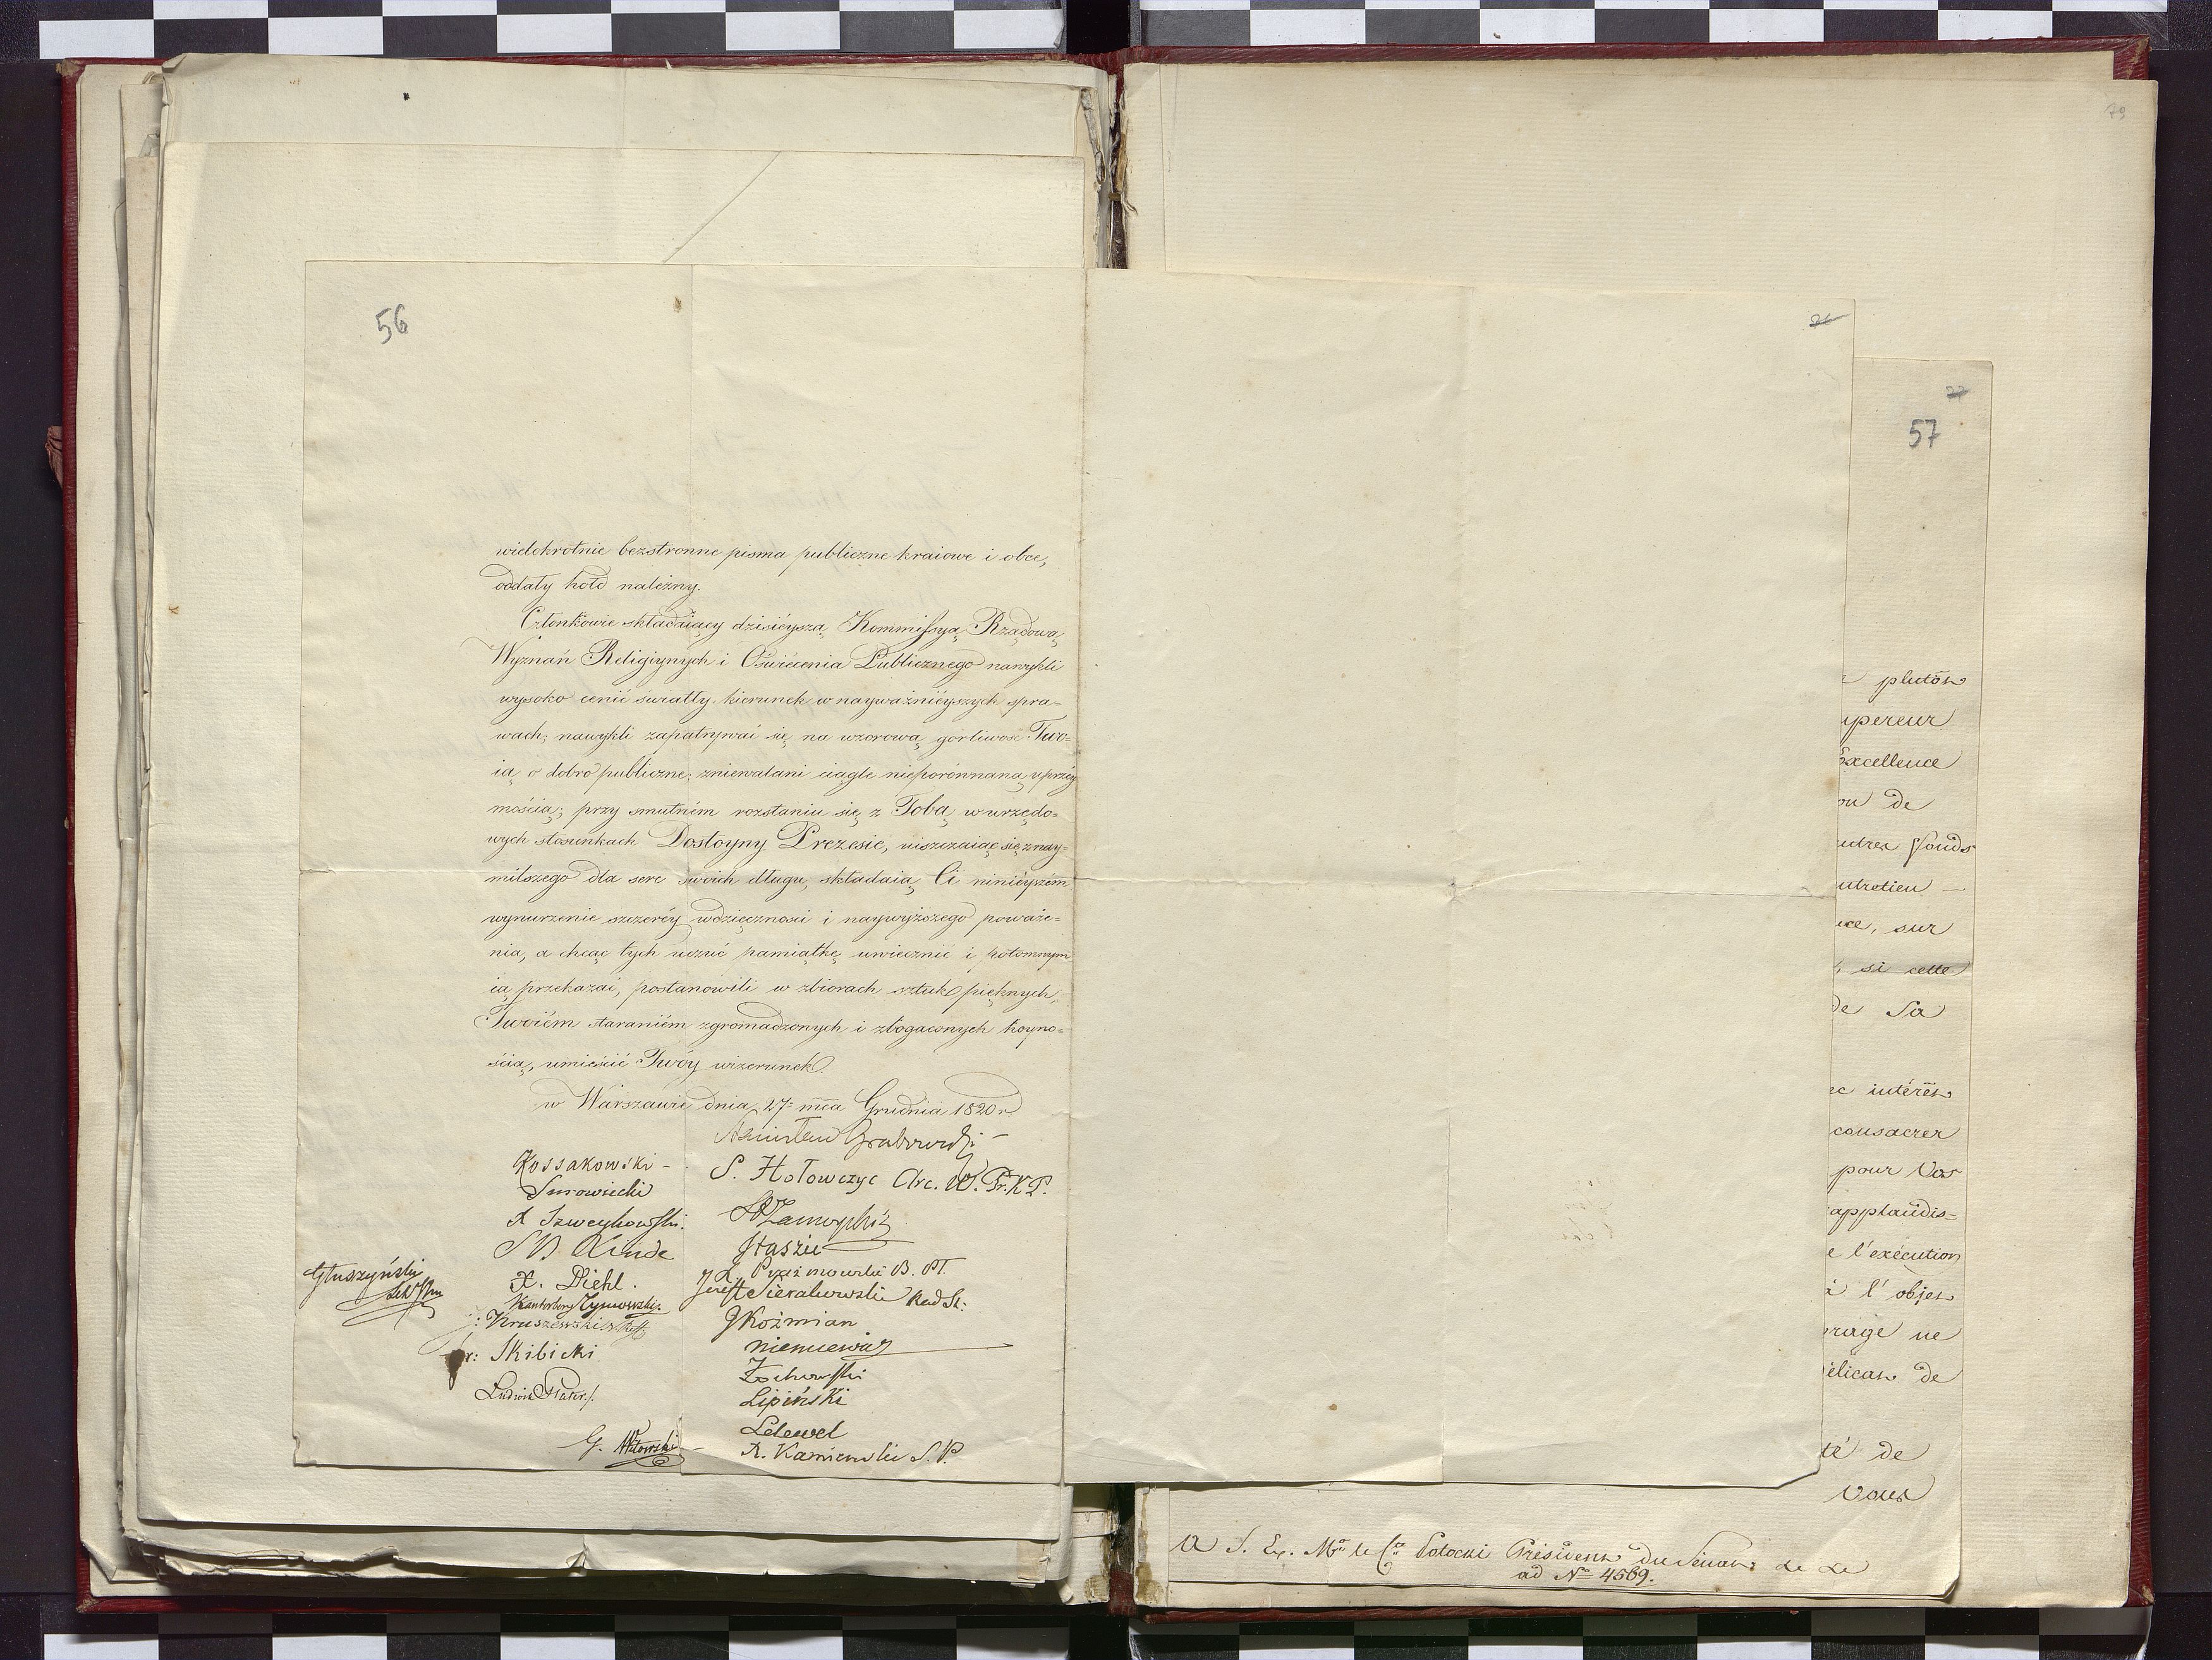 56
wielokrotnie bezstronne pisma publiczne kraiowe i obce,
oddały hołd należny.
Członkowie składaiący dzisiéyszą Kommissyą Rządową
Wyznań Religiynych i Oświécenia Publicznego nawykli
wysoko cenić światły kierunek w nayważniéyszych spra=
wach; nawykli zapatrywać się na wzorową gorliwość Two=
ią o dobro publiczne; zniewalani ciągle nieporównaną uprzéy
mością; przy smutném rozstaniu się z Tobą w urzędo=
wych stosunkach Dostoyny Prezesie, uiszczaiąc się z nay=
milszego dla serc swoich długu, składaią Ci niniéyszém
wynurzenie szczeréy wdzięczności i naywyższego poważe=
nia, a chcąc tych uczuć pamiątkę uwiecznić i potomnym
ią przekazać, postanowili w zbiorach sztuk pięknych,
Twoiém staraniém zgromadzonych i zbogaconych hoyno=
ścią, umieścić Twóy wizerunek.
w Warszawie dnia 27= mca Grudnia 1820 r
Stanisław Grabowski
Kossakowski
S. Hołowczyc Arc. W. Pr. K. P.
Surowiecki
A Szweykowski
Zamoyski
S B Linde
Staszic
Głuszyński
X. Diehl.
Prażmowski B. Pł.
Kantorbery Tymowski
Sierakowski Rad St:
Kruszewski
J Koźmian
Skibicki
Niemcewicz
Żochowski
Ludwik Plater
Lipiński
Lelewel
G. Witowski
A. Kamieński S. P.
79
76
77
57
plutôt
mpereur
Excellence
ou de
utres fonds
ntretien —
ce, sur
si cette
de Sa
ec intérêt
consacrer
pour Vos
applaudis=
e l'exécution
à l'objet
rage ne
élicat de
té de
Vous
A S. Ex. Mr le Cte Potocki Président du Sénat &c &c
ad No 4569.